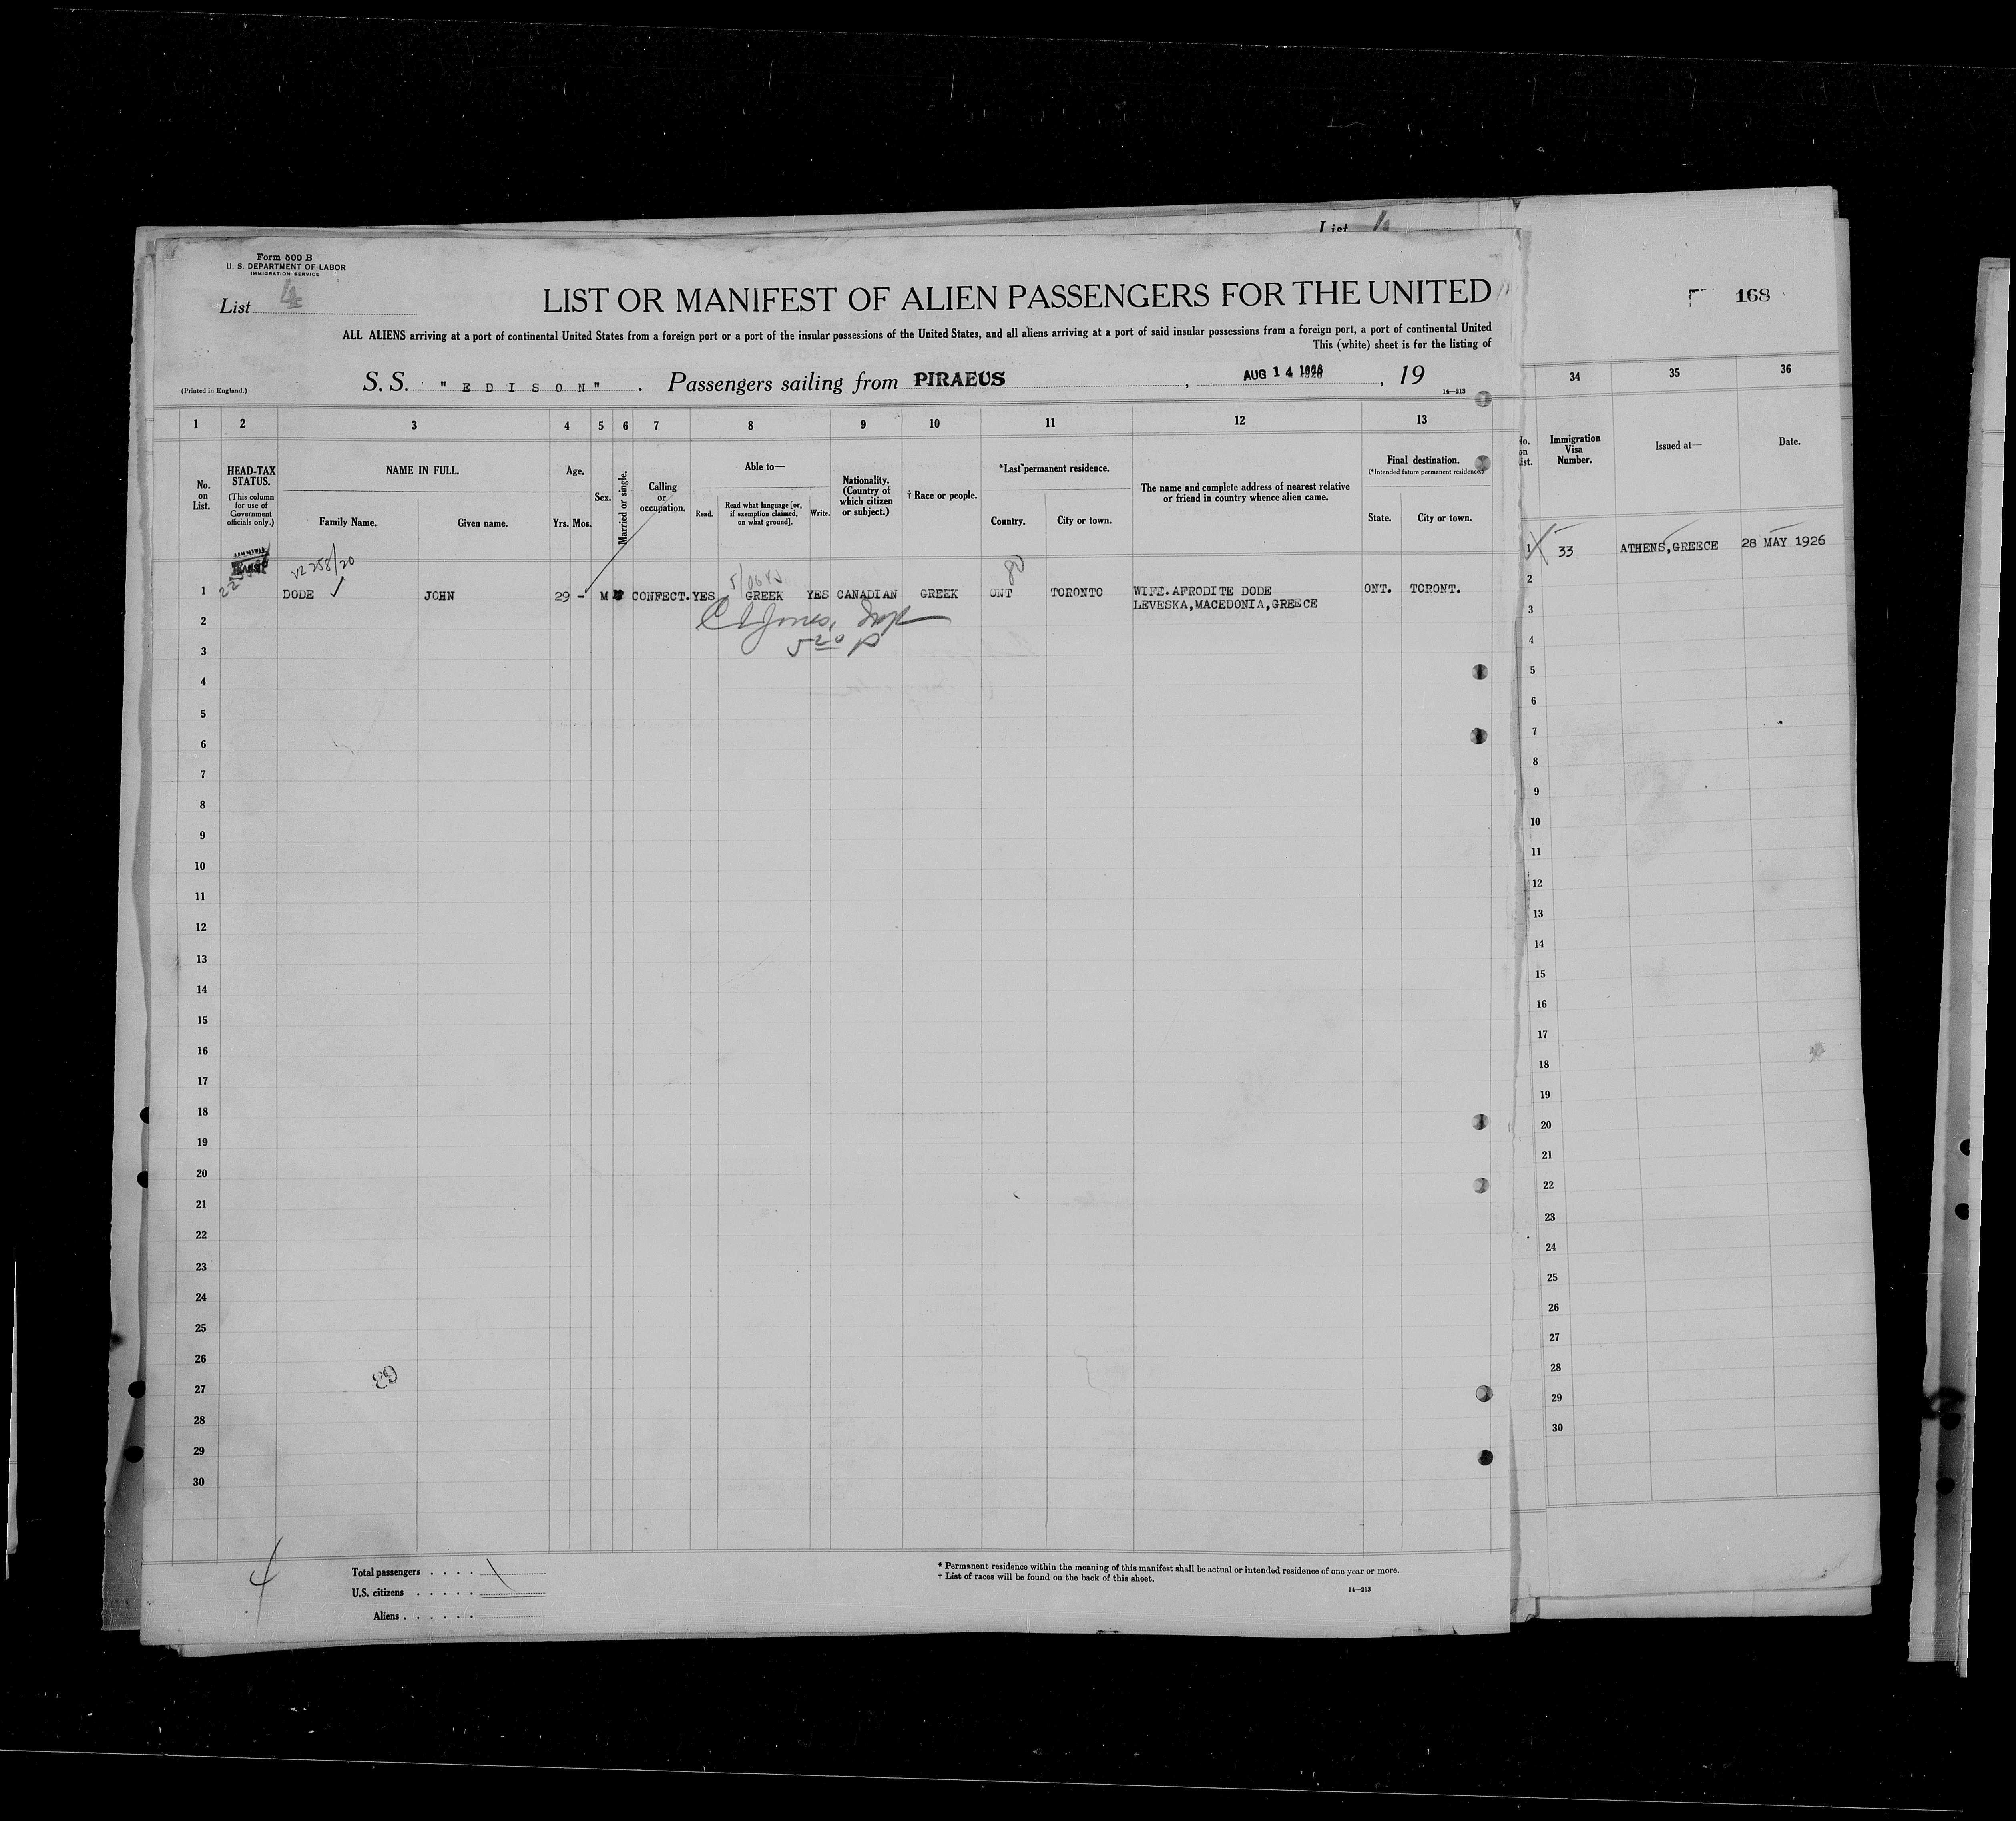 List 4
Form 500 B
U. S. DEPARTMENT OF LABOR
IMMIGRATION SERVICE
List 4
LIST OR MANIFEST OF ALIEN PASSENGERS FOR THE UNITED
ALL ALIENS arriving at a port of continental United States from a foreign port or a port of the insular possessions of the United States, and all aliens arriving at a port of said insular possessions from a foreign port, a port of continental United
This (white) sheet is for the listing of
(Printed in England.)
S. S. "EDISON". Passengers sailing from PIRAEUS, AUG 14 1926, 19
14—213
1 2 3 4 5 6 7 8 9 10 11 12 13
No. on List.
HEAD-TAX STATUS.
(This column for use of Government officials only.)
NAME IN FULL.
Family Name. Given name.
Age.
Yrs. Mos.
Sex.
Married or single.
Calling or occupation.
Able to—
Read. Read what language [or, if exemption claimed, on what ground]. Write.
Nationality. (Country of which citizen or subject.)
† Race or people.
*Last permanent residence.
Country. City or town.
The name and complete address of nearest relative or friend in country whence alien came.
Final destination.
(*Intended future permanent residence.)
State. City or town.
V2 258/20
80
1 DODE JOHN 29 - M CONFECT. YES GREEK YES CANADIAN GREEK ONT TORONTO WIFE.AFRODITE DODE ONT. TORONT.
LEVESKA,MACEDONIA,GREECE
2
3
4
5
6
7
8
9
10
11
12
13
14
15
16
17
18
19
20
21
22
23
24
25
26
27
28
29
30
4
Total passengers
U.S. citizens
Aliens
* Permanent residence within the meaning of this manifest shall be actual or intended residence of one year or more.
† List of races will be found on the back of this sheet.
14—213
168
34 35 36
Immigration Visa Number.
Issued at—
Date.
1 33 ATHENS,GREECE 28 MAY 1926
2
3
4
5
6
7
8
9
10
11
12
13
14
15
16
17
18
19
20
21
22
23
24
25
26
27
28
29
30